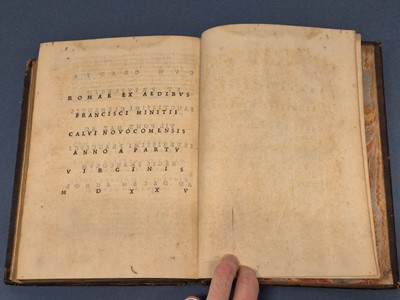 ROMAE EX AEDIBVS
FRANCISCI MINITII
CALVI NOVOCOMENSIS
ANNO A PARTV
VIRGINIS
M D XXV